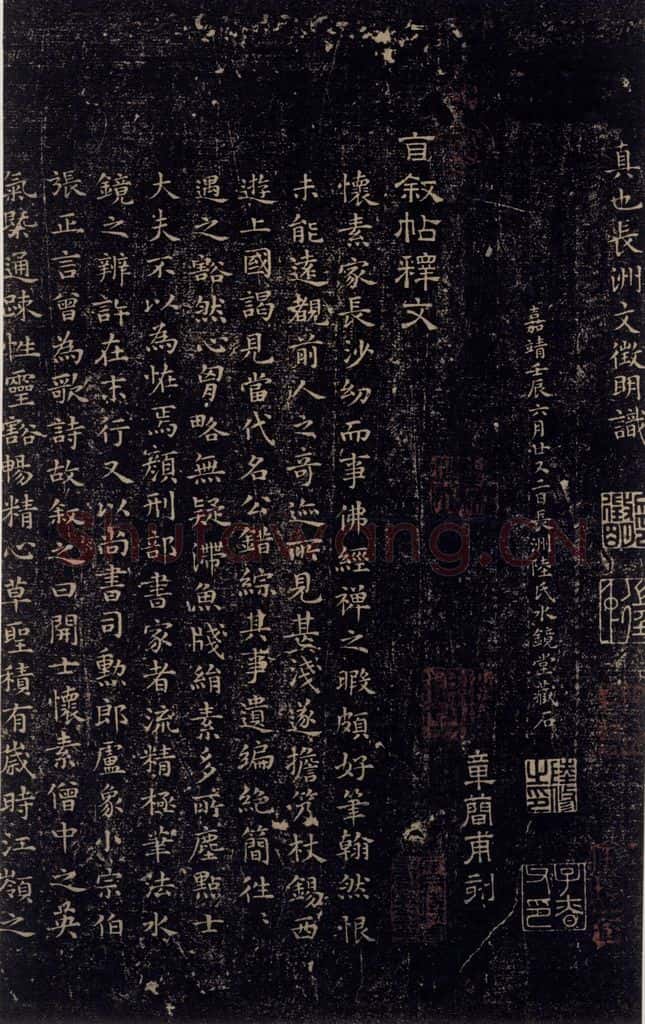 真也長洲文徵明識
嘉靖壬辰六月廿又二日長洲陸氏水鏡堂藏石
章簡甫刻
自叙帖釋文
懷素家長沙幼而事佛經禅之暇頗好筆翰然恨
未能遠覩前人之奇迹所見甚淺遂擔笈杖錫西
遊上國謁見當代名公錯綜其事遺編絶簡往〻
遇之豁然心胷略無疑滯魚牋絹素多所塵點士
大夫不以為恠焉顔刑部書家者流精極筆法水
鏡之辨許在末行又以尚書司勲郎盧象小宗伯
張正言曾為歌詩故叙之曰開士懷素僧中之英
氣槩通疎性靈豁暢精心草聖積有歲時江嶺之
Shufawang.CN